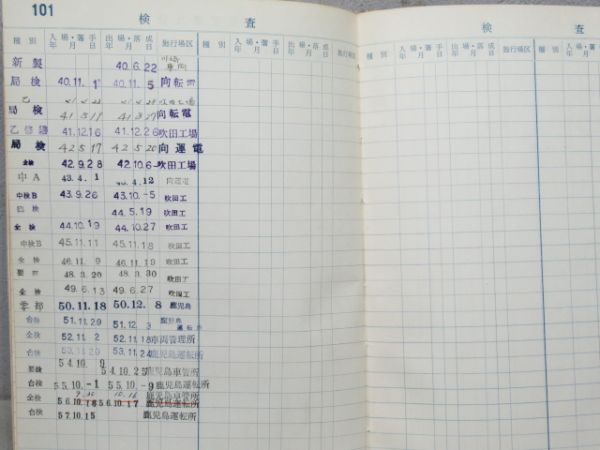 101
検 査
種別 入場・著手 年月日 出場・落成 年月日 施行場区 種別 入場・著手 年月日 出場・落成 年月日 施行場区
新製 40.6.22
局検 40.11.1 40.11.5 向転
局検 41.5. 向転電
乙修繕 41.12.16 41.12.26 吹田工場
局検 42.5.17 42.5.20 向運電
全検 42.9.28 42.10.6 吹田工場
中A 43.4.1 43.4.12 向運電
中検B 43.9.26 43.10.-5 吹田工
44.5.19 吹田工
全検 44.10.19 44.10.27 吹田工
中検B 45.11.11 45.11.18 吹田工
全検 46.11.9 46.11.19 吹田工
48.3.20 48.3.30 吹田工
全検 49.6.13 49.6.27 吹田工
要部 50.11.18 50.12.8 鹿児島
台検 51.11.29 51.12.3 鹿児島 運転所
全検 52.11.2 52.11.18 車両管理所
台検 53.11.20 53.11.24 鹿児島運転所
要検 54.10.9 54.10.25 鹿児島車管所
台検 55.10.-1 55.10.-9 鹿児島運転所
全検 56.10.18 56.10.17 鹿児島運転所
台検 57.10.15 鹿児島運転所
検 査
種別 入場・著手 年月日 出場・落成 年月日 施行場区 種別 入場・著手 年月日